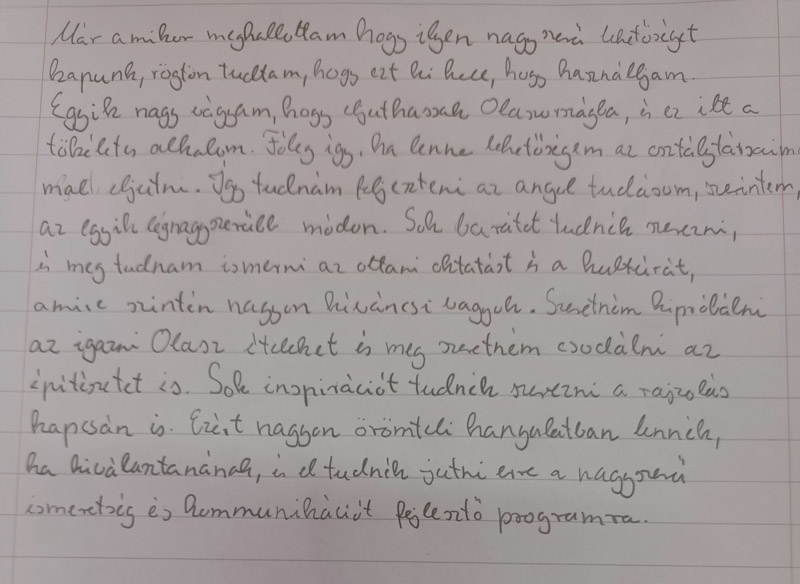 Már amikor meghallottam hogy ilyen nagyszerű lehetőséget
kapunk, rögtön tudtam, hogy ezt ki kell, hogy használjam.
Egyik nagy vágyam, hogy eljuthassak Olaszországba, és ez itt a
tökéletes alkalom. Főleg így, ha lenne lehetőségem az osztálytársaim
mal eljutni. Így tudnám fejleszteni az angol tudásom, szerintem,
az egyik legnagyszerűbb módon. Sok barátot tudnék szerezni,
és meg tudnam ismerni az ottani oktatást és a kultúrát,
amire szintén nagyon kiváncsi vagyok. Szeretném kipróbálni
az igazni Olasz ételeket és meg szeretném csodálni az
építészetet is. Sok inspirációt tudnék szerezni a rajzolás
kapcsán is. Ezért nagyon örömteli hangulatban lennék,
ha kiválasztanának, és el tudnék jutni erre a nagyszerű
ismeretség és kommunikációt fejlesztő programra.